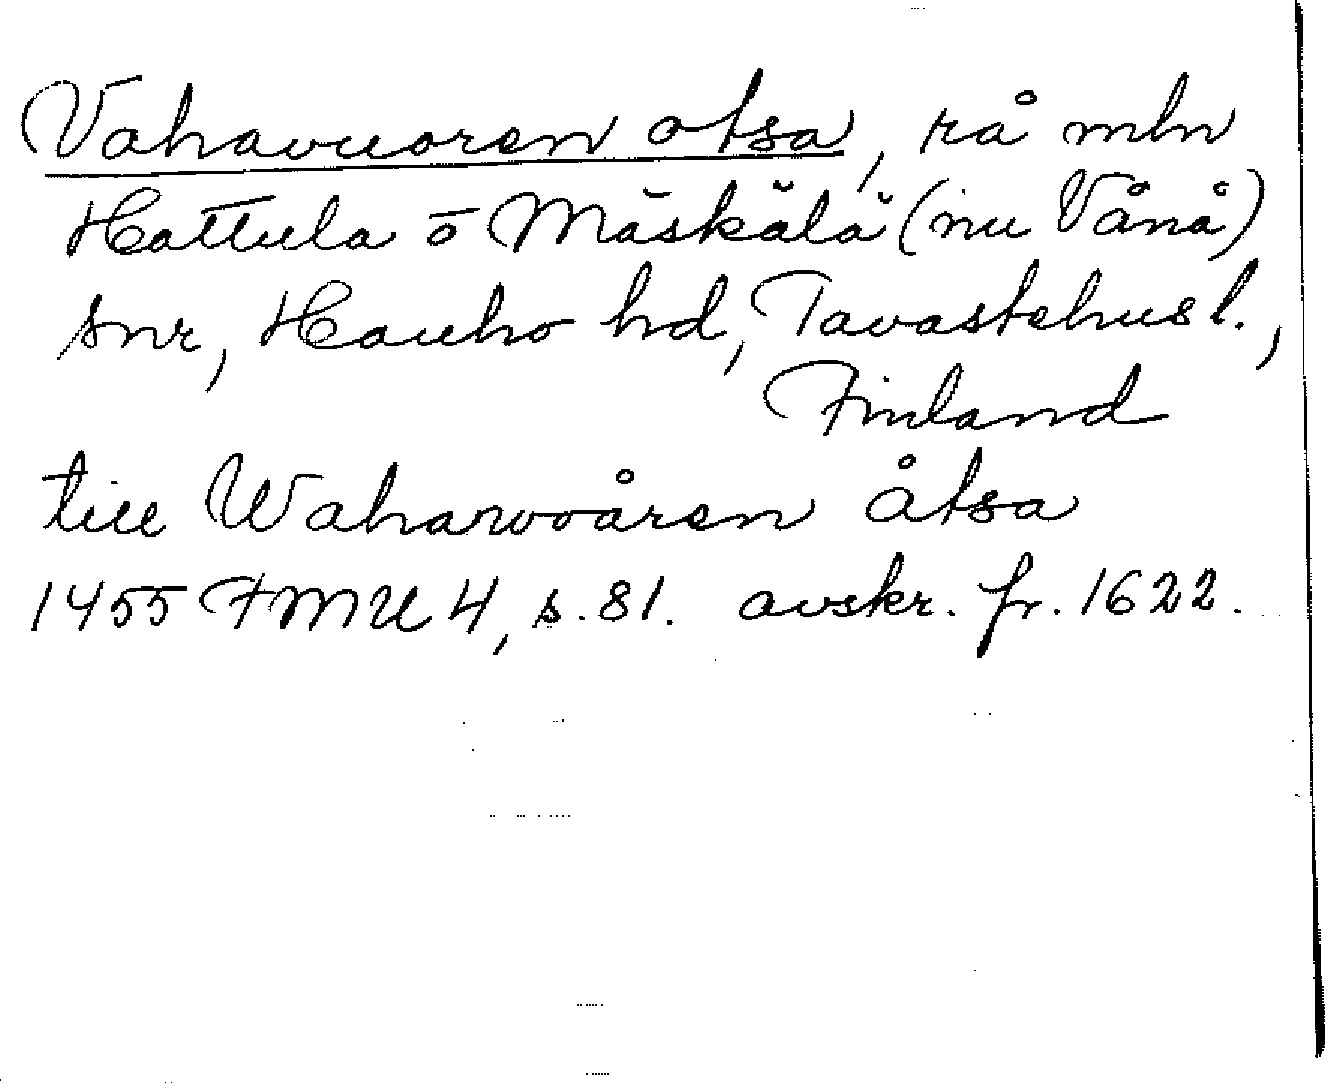 Vahavuoren otsa, rå mln
Hattula o Mäskälä (nu Vånå)
snr, Hauho hd, Tavastehus l.,
Finland
till Waharwoåren åtsa
1455 FMU 4, s. 81. avskr. fr. 1622.